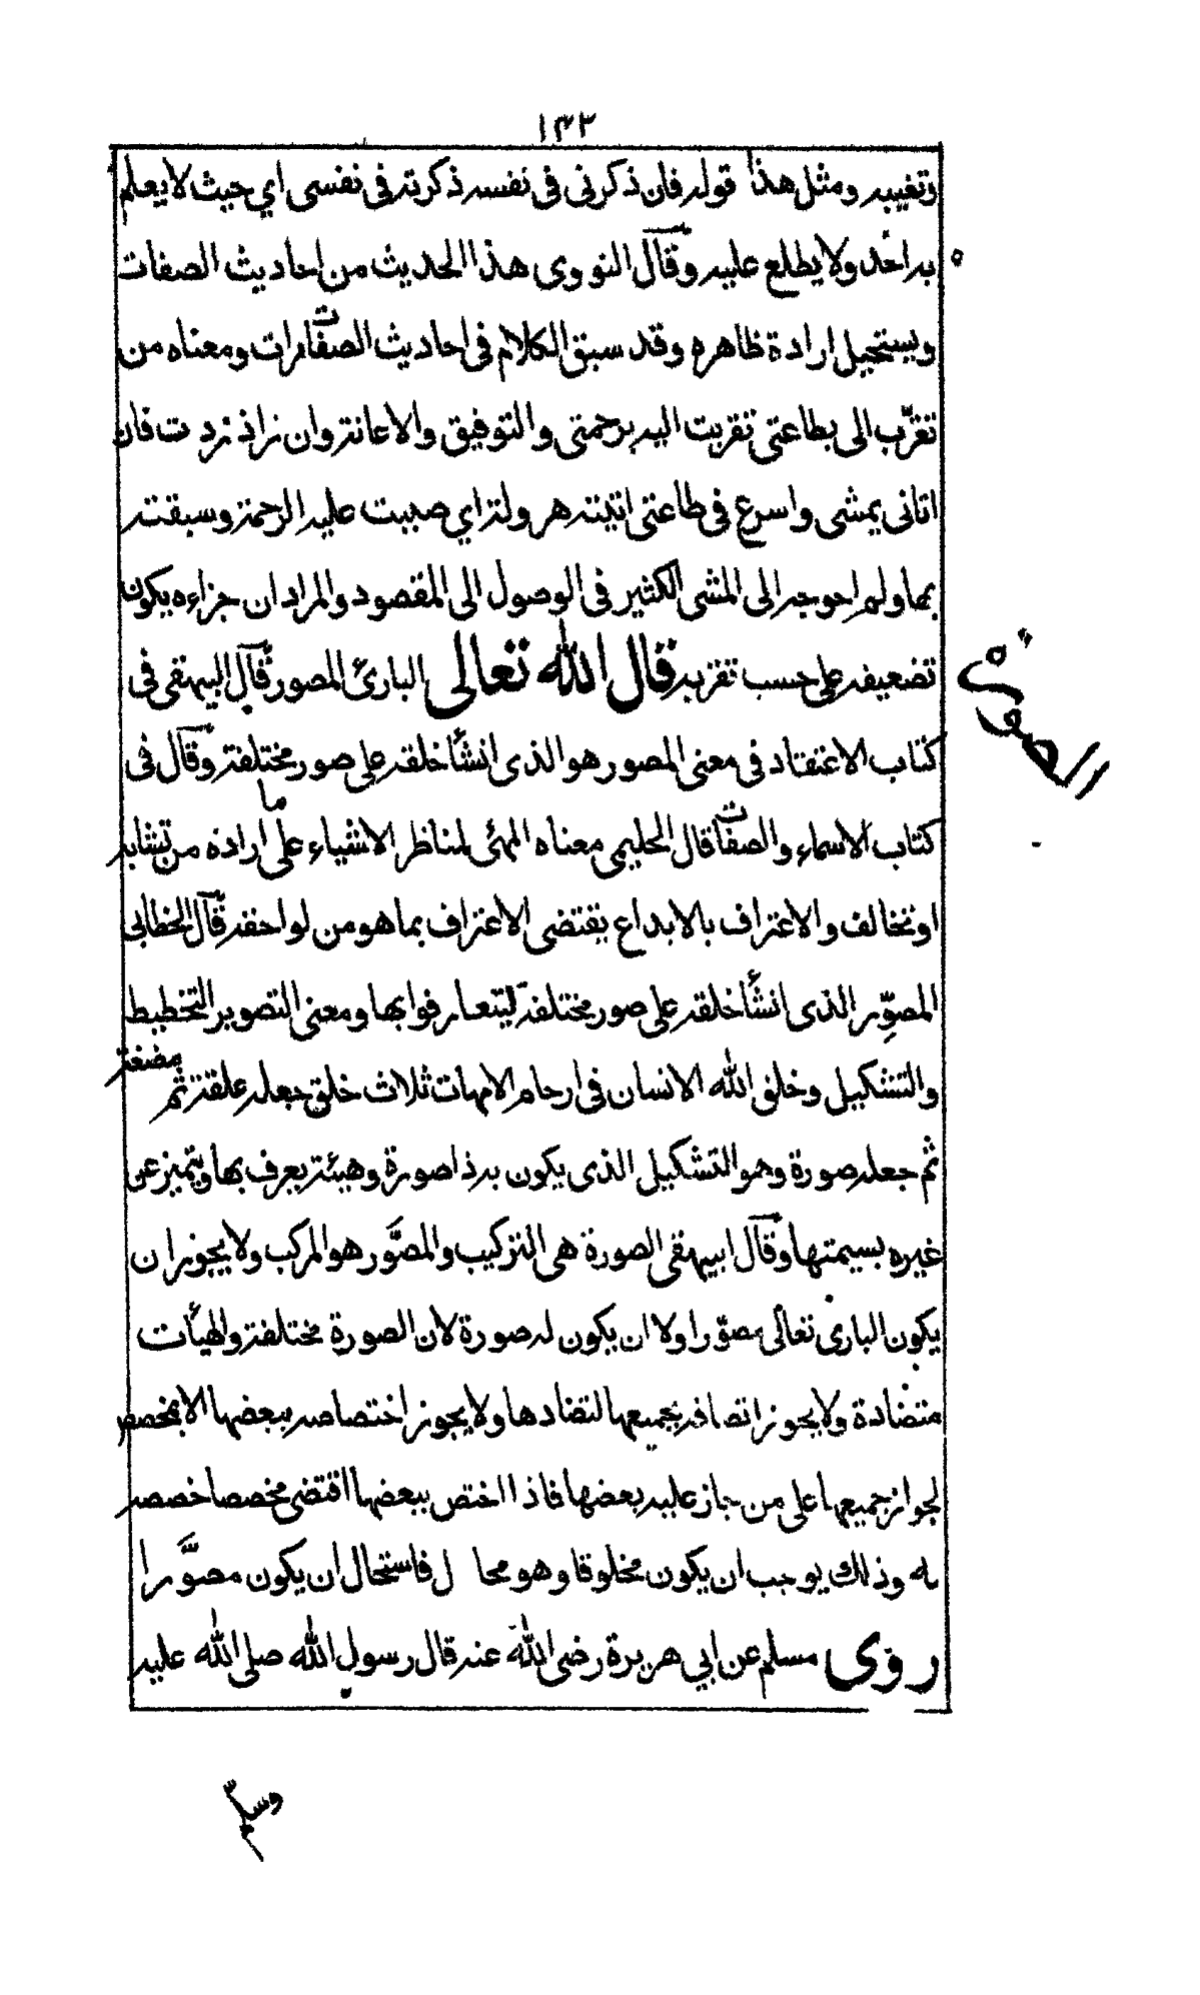 ١٣٢
وتغييبه ومثل هذا قوله فان ذكرني في نفسه ذكرته في نفسي اي حيث لا يعلم
به احد ولا يطلع عليه وقال النووي هذا الحديث من احاديث الصفات
ويستحيل ارادة ظاهره وقد سبق الكلام في احاديث الصفات مرات ومعناه من
تقرّب الى بطاعتي تقربت اليه برحمتي والتوفيق والاعانة وان زاد زدت فان
اتاني يمشي واسرع في طاعتي اتيته هرولة اي صببت عليه الرحمة وسبقته
بها ولم احوجه الى المشي الكثير في الوصول الى المقصود والمراد ان جزاءه يكون
تضعيفه على حسب تقربه قال الله تعالى البارئ المصور قال البيهقي في
كتاب الاعتقاد في معنى المصور هو الذي انشأ خلقه على صور مختلفة وقال في
كتاب الاسماء والصفات قال الحليمي معناه المهئ لمناظر الاشياء على ما اراده من تشابه
او تخالف والاعتراف بالابداع يقتضي الاعتراف بما هو من لواحقه قال الخطابي
المصوّر الذي انشأ خلقه على صور مختلفة ليتعارفوا بها ومعنى التصوير التخطيط
والتشكيل وخلق الله الانسان في ارحام الامهات ثلاث خلق جعله علقة ثم مضغة
ثم جعله صورة وهو التشكيل الذي يكون به ذا صورة وهيئة يعرف بها ويتميز عن
غيره بسيمتها وقال ابيهقي الصورة هي التركيب والمصَّور هو المركب ولا يجوز ان
يكون الباري تعالى مصوّرا ولا ان يكون له صورة لان الصورة مختلفة والهيأت
متضادة ولا يجوز اتصافه بجميعها لتضادها ولا يجوز اختصاصه ببعضها الا بمخصص
لجواز جميعها على من جاز عليه بعضها فاذا اختص ببعضها اقتضى مخصصا خصصه
به وذلك يوجب ان يكون مخلوقا وهو محال فاستحال ان يكون مصَّورا
روى مسلم عن ابي هريرة رضي الله عنه قال رسول الله صلى الله عليه
الصورة
وسلم